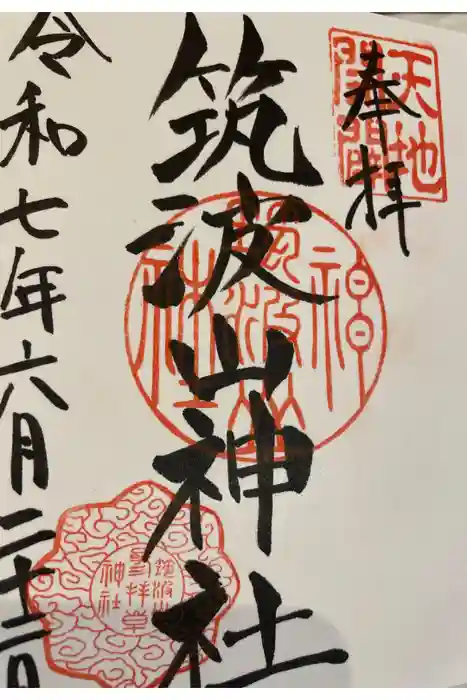 奉拝
天地
開闢
筑波山神社
筑波山
神社
令和七年六月二十二日
筑波山
参拝章
神社